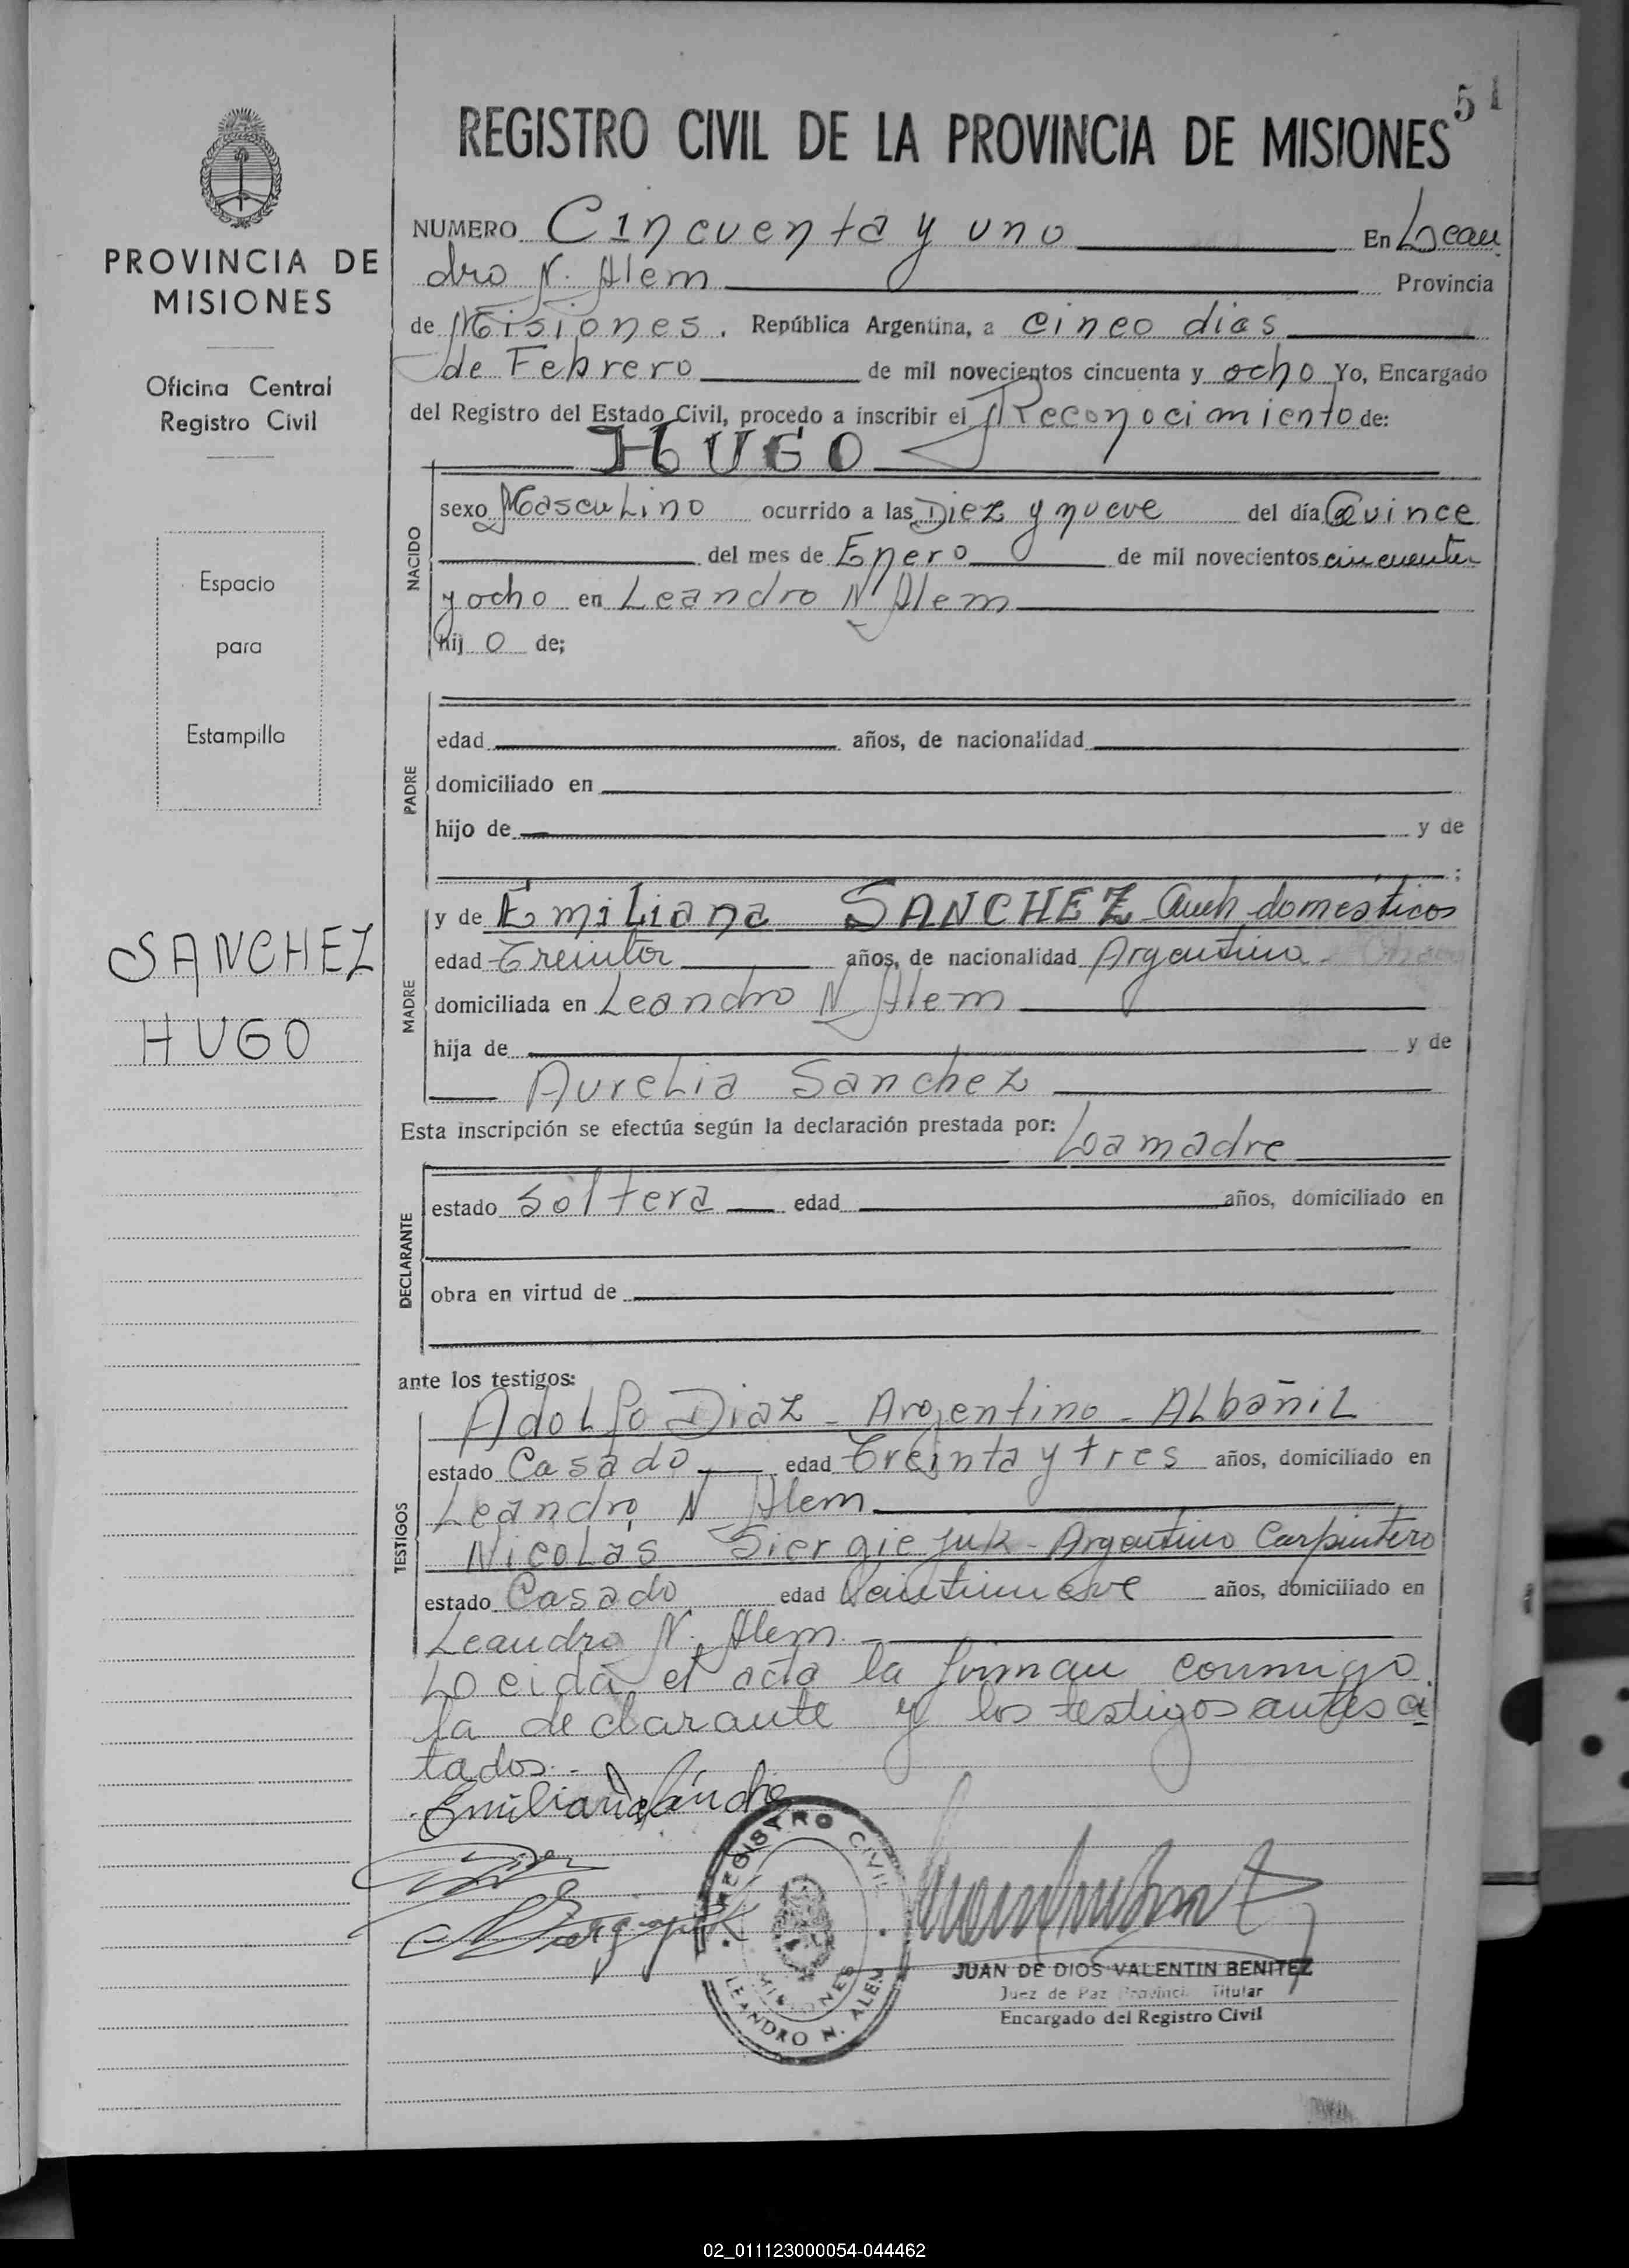 51
REGISTRO CIVIL DE LA PROVINCIA DE MISIONES
PROVINCIA DE
MISIONES
Oficina Central
Registro Civil
Espacio
para
Estampilla
SANCHEZ
HUGO
NUMERO Cincuenta y uno En Lean
dro N. Alem Provincia
de Misiones. República Argentina, a cinco dias
de Febrero de mil novecientos cincuenta y ocho Yo, Encargado
del Registro del Estado Civil, procedo a inscribir el Reconocimiento de:
HUGO
NACIDO
sexo Masculino ocurrido a las Diez y nueve del día Quince
del mes de Enero de mil novecientos cincuenta
y ocho en Leandro N Alem
hij o de;
PADRE
edad años, de nacionalidad
domiciliado en
hijo de y de
;
MADRE
y de Emiliana SANCHEZ domésticos
edad Treinta años, de nacionalidad Argentina
domiciliada en Leandro N Alem
hija de y de
Aurelia Sanchez
Esta inscripción se efectúa según la declaración prestada por: La madre
DECLARANTE
estado Soltera edad años, domiciliado en
obra en virtud de
ante los testigos:
TESTIGOS
Adolfo Diaz - Argentino - Albañil
estado Casado edad Treinta y tres años, domiciliado en
Leandro N Alem
Nicolás Siergiejuk - Argentino Carpintero
estado Casado edad Veintinueve años, domiciliado en
Leandro N. Alem.
Leida el acta la firman conmigo
la declarante y los testigos antes ci
tados.-
Emiliana Sánche
REGISTRO CIVIL
MISIONES
LEANDRO N. ALEM
JUAN DE DIOS VALENTIN BENITEZ
Juez de Paz Provincial Titular
Encargado del Registro Civil
02_011123000054-044462